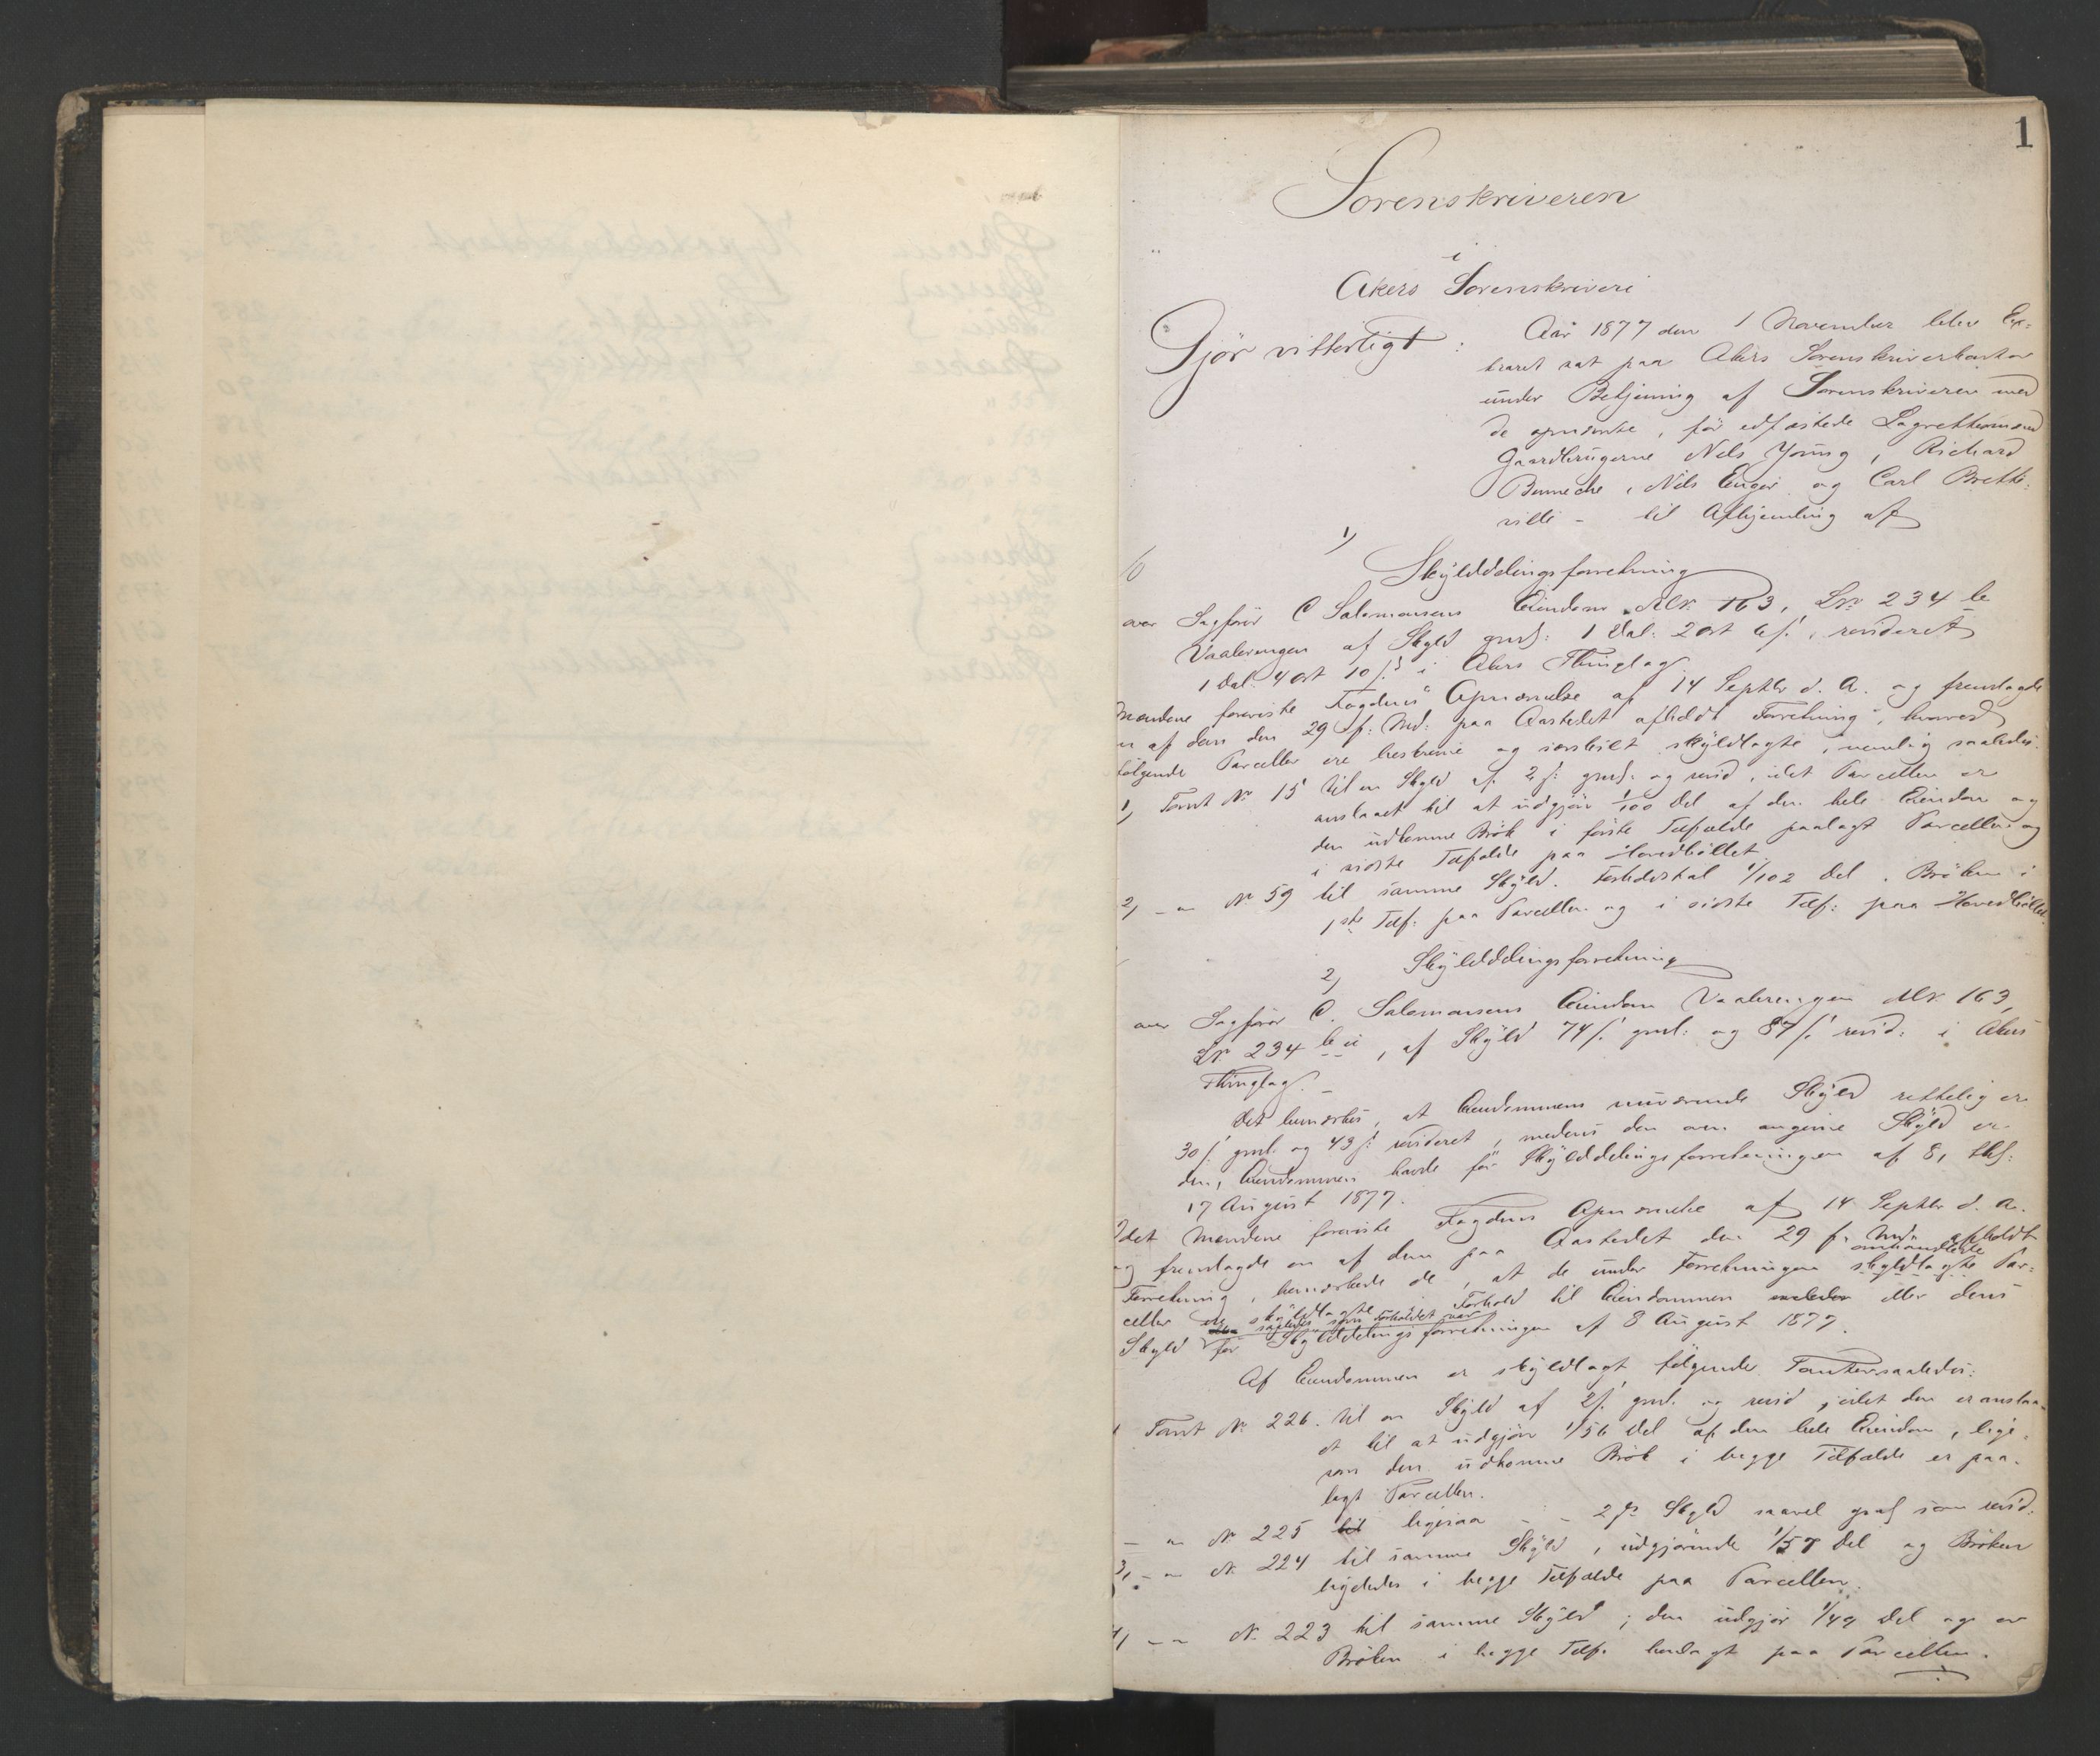 1
Sorenskriveren
i
Akers Sorenskriveri
Gjör vitterligt :
Aar 1877 den 1 November blev Ex-
traret sat paa Akers Sorenskriverkontor
under Betjening af Sorenskriveren med
de opnævnte, før edfæstede Lagrettemænd
Gaardbrugerne Nils Young, Richard
Benneche, Nils Enger og Carl Brette-
ville – til Afhjemling af
1)
Skylddelingsforretning
over Sagfører C Salomonsens Eiendom Mk 163, Lr 234 b
Vaalerengen af Skyld gml: 1 Dal: 2 ort 6 ß, revideret
1 Dal. 4 ort 10 ß i Akers Thinglag.
Mændene foreviste Fogdens Opnævnelse af 14 Septbr d. A. og fremlagde
en af dem den 29 f: Md: paa Aastedet afholdt Forretning, hvorved
følgende Parceller ere bestemte og særskilt skyldlagte, nemlig saaledes:
1) Tomt No 15 til en Skyld af 2 ß gml: og revid, idet Parcellen er
anslaaet til at udgjøre 1/100 Del af den hele Eiendom og
den udkomne Brök i første Tilfælde paalagt Parcellen og
i sidste Tilfælde paa Hovedbøllet
2) – „ No 59 til samme Skyld. Forholdstal 1/102 Del. Bröken i
1ste Tilf: paa Parcellen og i sidste Tilf: paa Hovedbøllet.
2) Skylddelingsforretning
over Sagfører C. Salomonsens Eiendom Vaalerengen Mk 163,
Lr 234 b u, af Skyld 74 ß gml: og 87 ß revid: i Akers
Thinglag. –
Det bemærkes, at Eiendommens nuværende Skyld rettelig er
30 ß gml. og 43 ß revideret, medens den oven angivne Skyld er
den, Eiendommen havde før Skylddelingsforretningen af 8, thl:
17 August 1877.
Idet Mændene foreviste Fogdens Opnævnelse af 14 Septbr d. A.
og fremlagde en af dem paa Aastedet den 29 f. Md. afholdt
Forretning, bemærkede de, at de under Forretningen omhandlede skyldlagte Par-
celler ere skyldlagte i Forhold til Eiendommen eller dens
Skyld saaledes som Forholdet var før Skylddelingsforretningen af 8 August 1877.
Af Eiendommen er skyldlagt følgende Tomter saaledes:
1 Tomt No 226. til en Skyld af 2 ß gml. og revid, idet den er anslaa-
et til at udgjøre 1/56 Del af den hele Eiendom, lige-
som den udkomne Brök i begge Tilfælde er paa-
lagt Parcellen.
– „ No 225 til ligesaa – – 2 ß Skyld saavel gml som revid:
3, – „ No 224 til samme Skyld, udgjørende 1/57 Del og Bröken
ligeledes i begge Tilfælde paa Parcellen.
4) – „ No 223 til samme Skyld; den udgjør 1/49 Del og er
Bröken i begge Tilf. henlagt paa Parcellen.